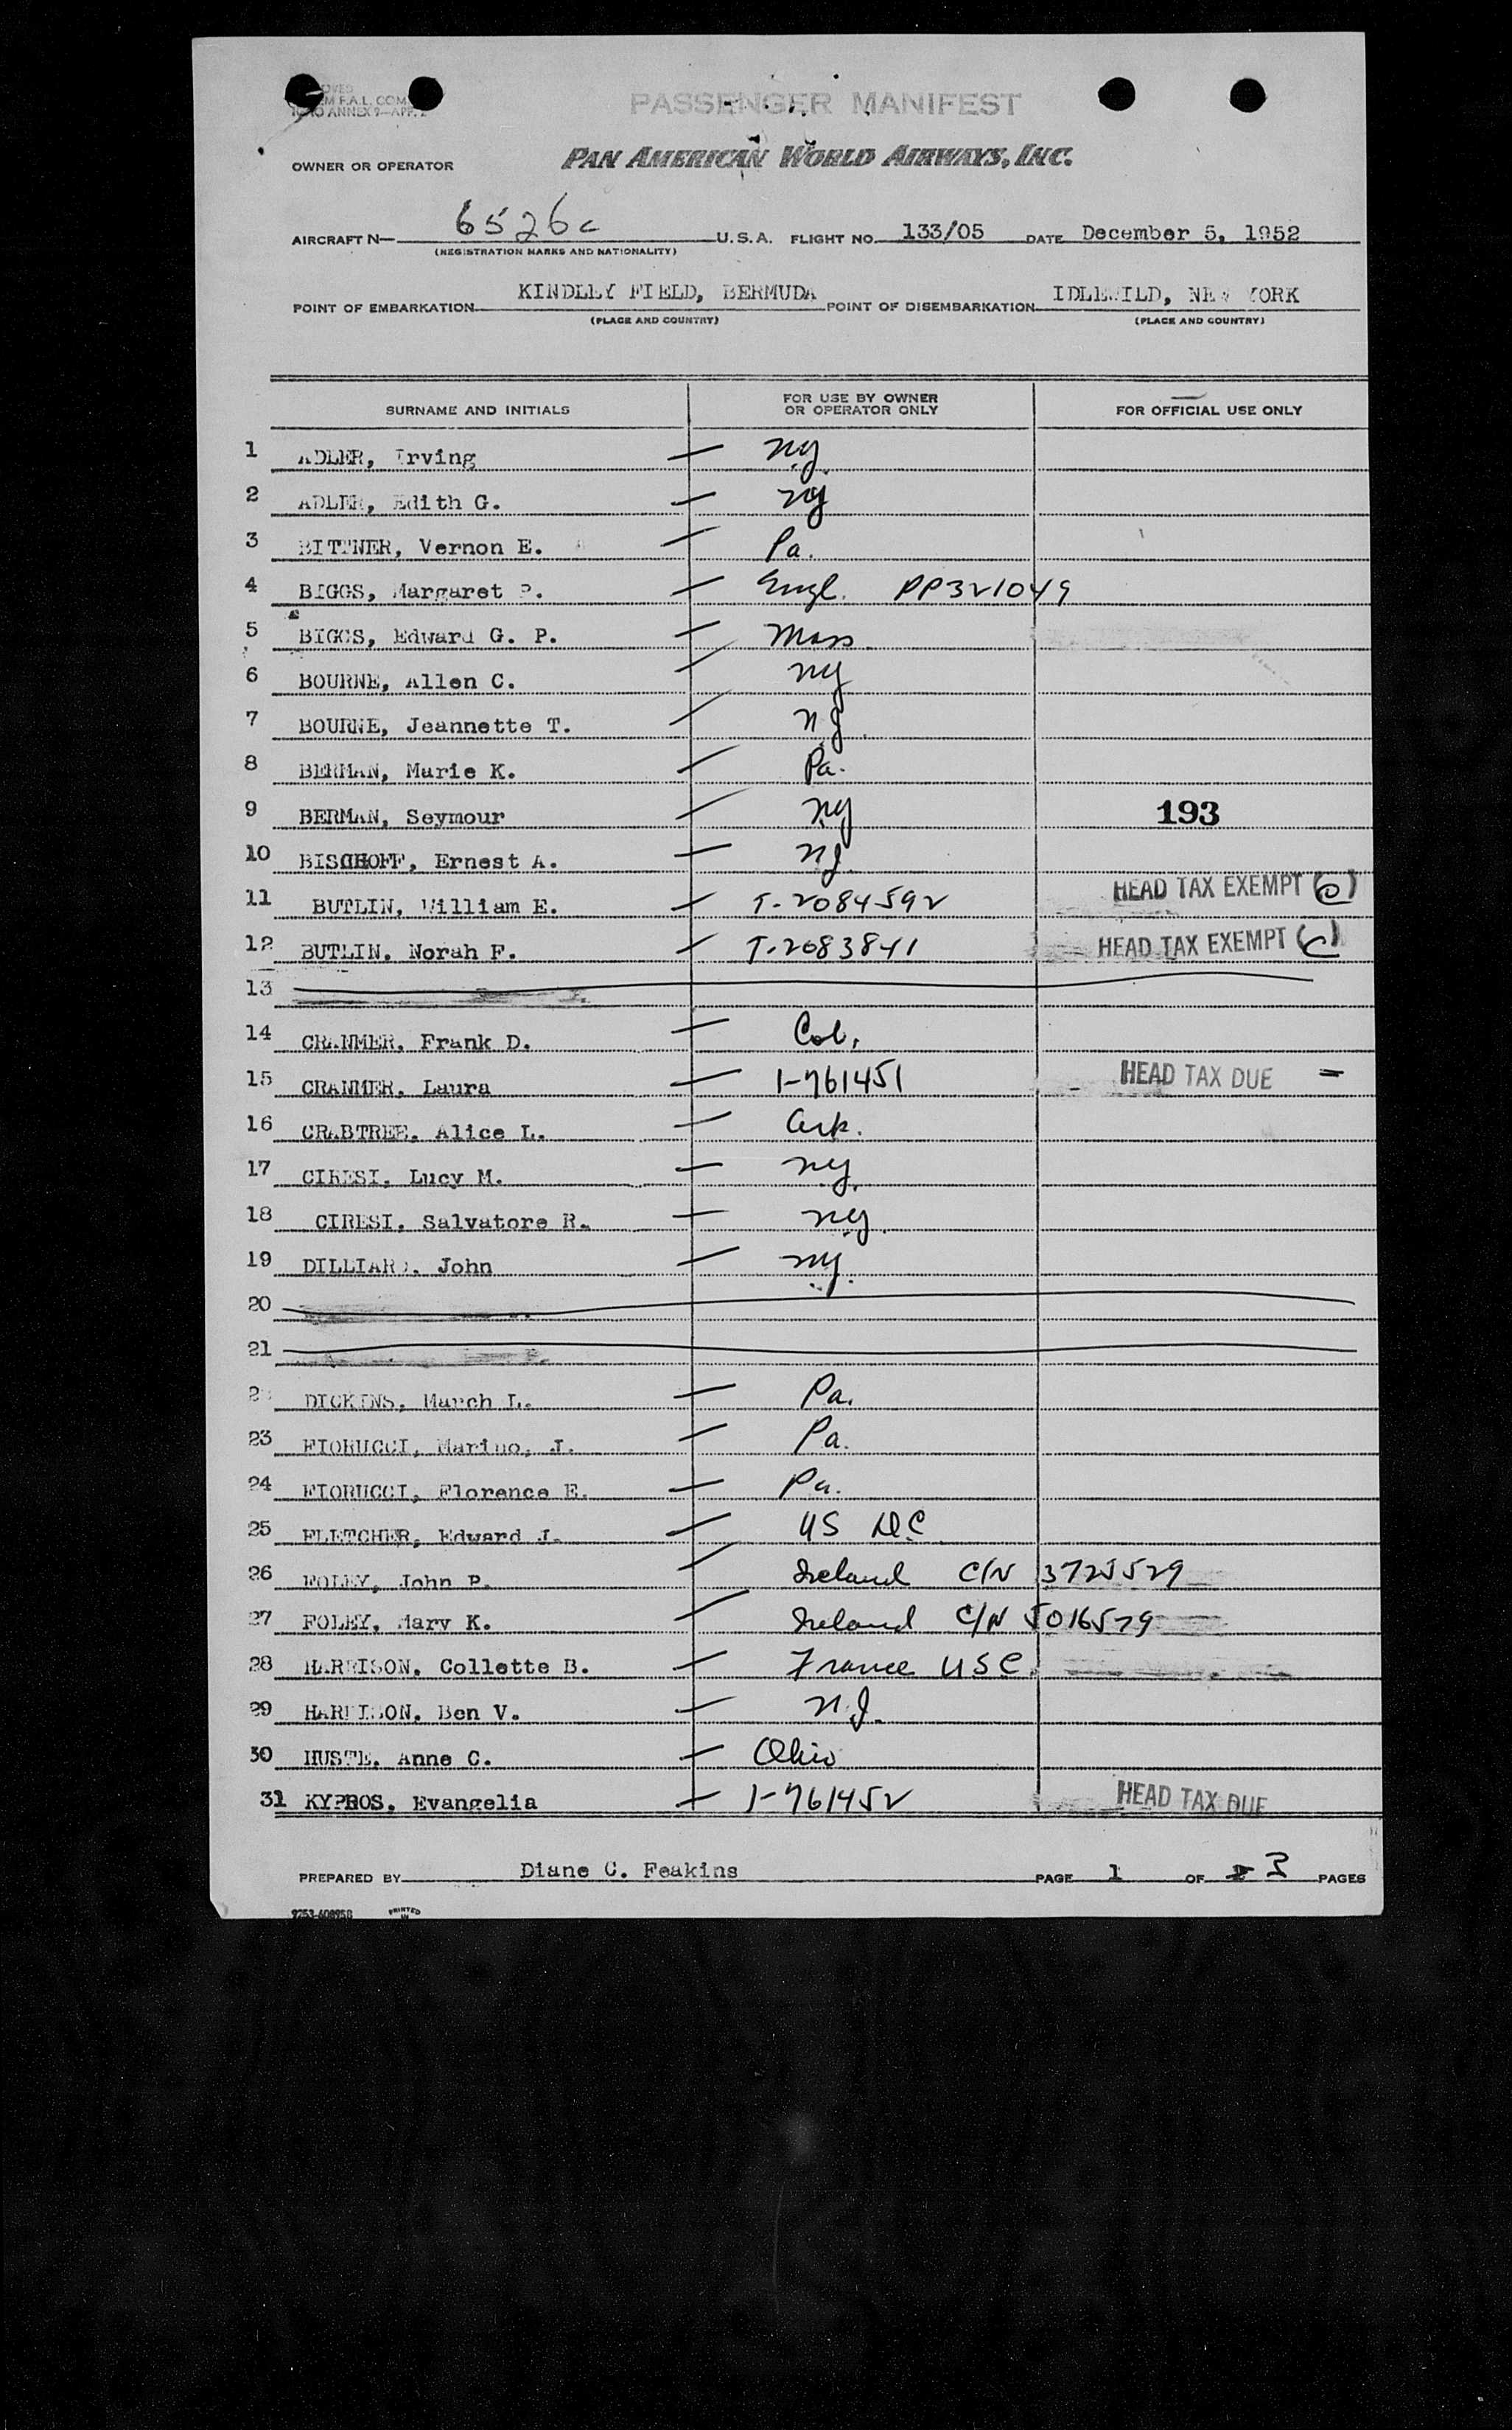 PASSENGER MANIFEST
F.A.L. COM
ANNEX 9—APP. 2
OWNER OR OPERATOR PAN AMERICAN WORLD AIRWAYS, INC.
AIRCRAFT N— 6526c U.S.A. FLIGHT NO. 133/05 DATE December 5, 1952
(REGISTRATION MARKS AND NATIONALITY)
POINT OF EMBARKATION KINDLEY FIELD, BERMUDA POINT OF DISEMBARKATION IDLEWILD, NEW YORK
(PLACE AND COUNTRY) (PLACE AND COUNTRY)
SURNAME AND INITIALS FOR USE BY OWNER OR OPERATOR ONLY FOR OFFICIAL USE ONLY
1 ADLER, Irving — ny.
2 ADLER, Edith G. — ny
3 BITTNER, Vernon E. — Pa.
4 BIGGS, Margaret P. — Engl. PP321049
5 BIGGS, Edward G. P. — Mass.
6 BOURNE, Allen C. — ny
7 BOURNE, Jeannette T. — n.J.
8 BERMAN, Marie K. — Pa.
9 BERMAN, Seymour — ny 193
10 BISCHOFF, Ernest A. — NJ.
11 BUTLIN, William E. — T-2084592 HEAD TAX EXEMPT (C)
12 BUTLIN, Norah F. — T-2083841 HEAD TAX EXEMPT (C)
13
14 CRANMER, Frank D. — Col.
15 CRANMER, Laura — 1-761451 HEAD TAX DUE —
16 CRABTREE, Alice L. — Ark.
17 CIRESI, Lucy M. — ny.
18 CIRESI, Salvatore R. — ny.
19 DILLIARD, John — ny.
20
21
2 DICKINS, March L. — Pa.
23 FIORUCCI, Marino, J. — Pa.
24 FIORUCCI, Florence E. — Pa.
25 FLETCHER, Edward J. — US DC
26 FOLEY, John P. — Ireland C/N 3725529
27 FOLEY, Mary K. — Ireland C/N 5016579
28 HARRISON, Collette B. — France USC
29 HARRISON, Ben V. — N.J.
30 HUSTE, Anne C. — Ohio
31 KYPROS, Evangelia — 1-761452 HEAD TAX DUE
PREPARED BY Diane C. Feakins PAGE 1 OF 3 PAGES
9253-60895B PRINTED IN